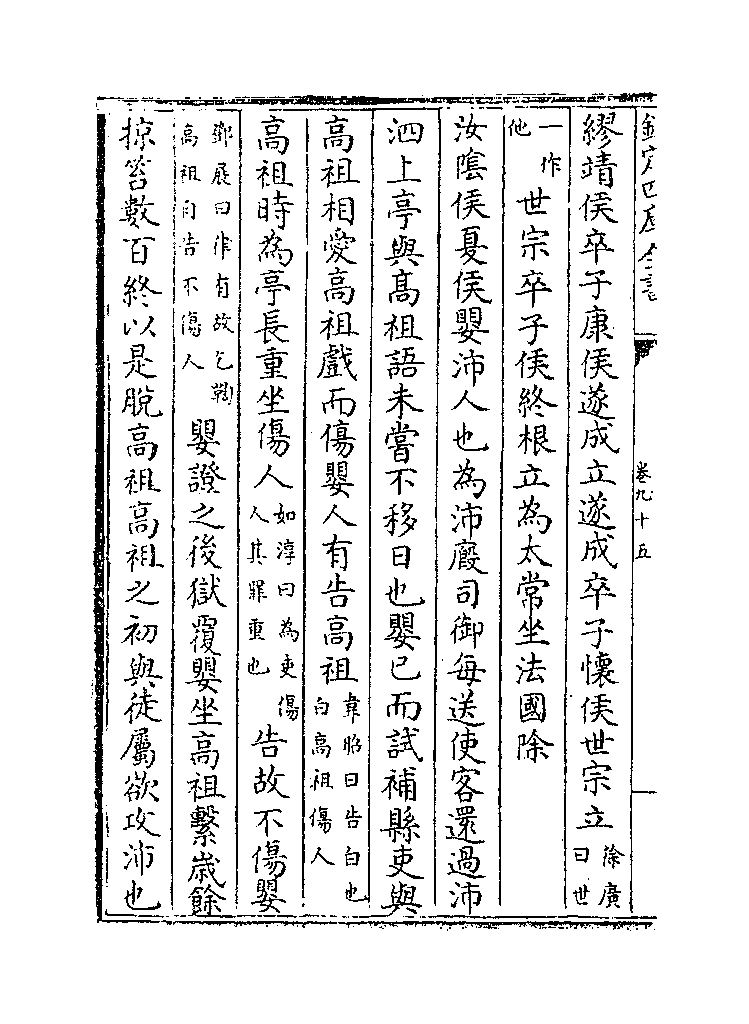 欽定四庫全書 卷九十五
繆靖侯卒子康侯遂成立遂成卒子懷侯世宗立徐廣曰世
一作他世宗卒子侯終根立為太常坐法國除
汝隂侯夏侯嬰沛人也為沛廄司御每送使客還過沛
泗上亭與髙祖語未嘗不移日也嬰已而試補縣吏與
高祖相愛高祖戲而傷嬰人有告高祖韋昭曰告白也白高祖傷人
高祖時為亭長重坐傷人如淳曰為吏傷人其罪重也告故不傷嬰
鄧展曰律有故乞鞫高祖自告不傷人嬰證之後獄覆嬰坐高祖繫嵗餘
掠笞數百終以是脫高祖高祖之初與徒屬欲攻沛也